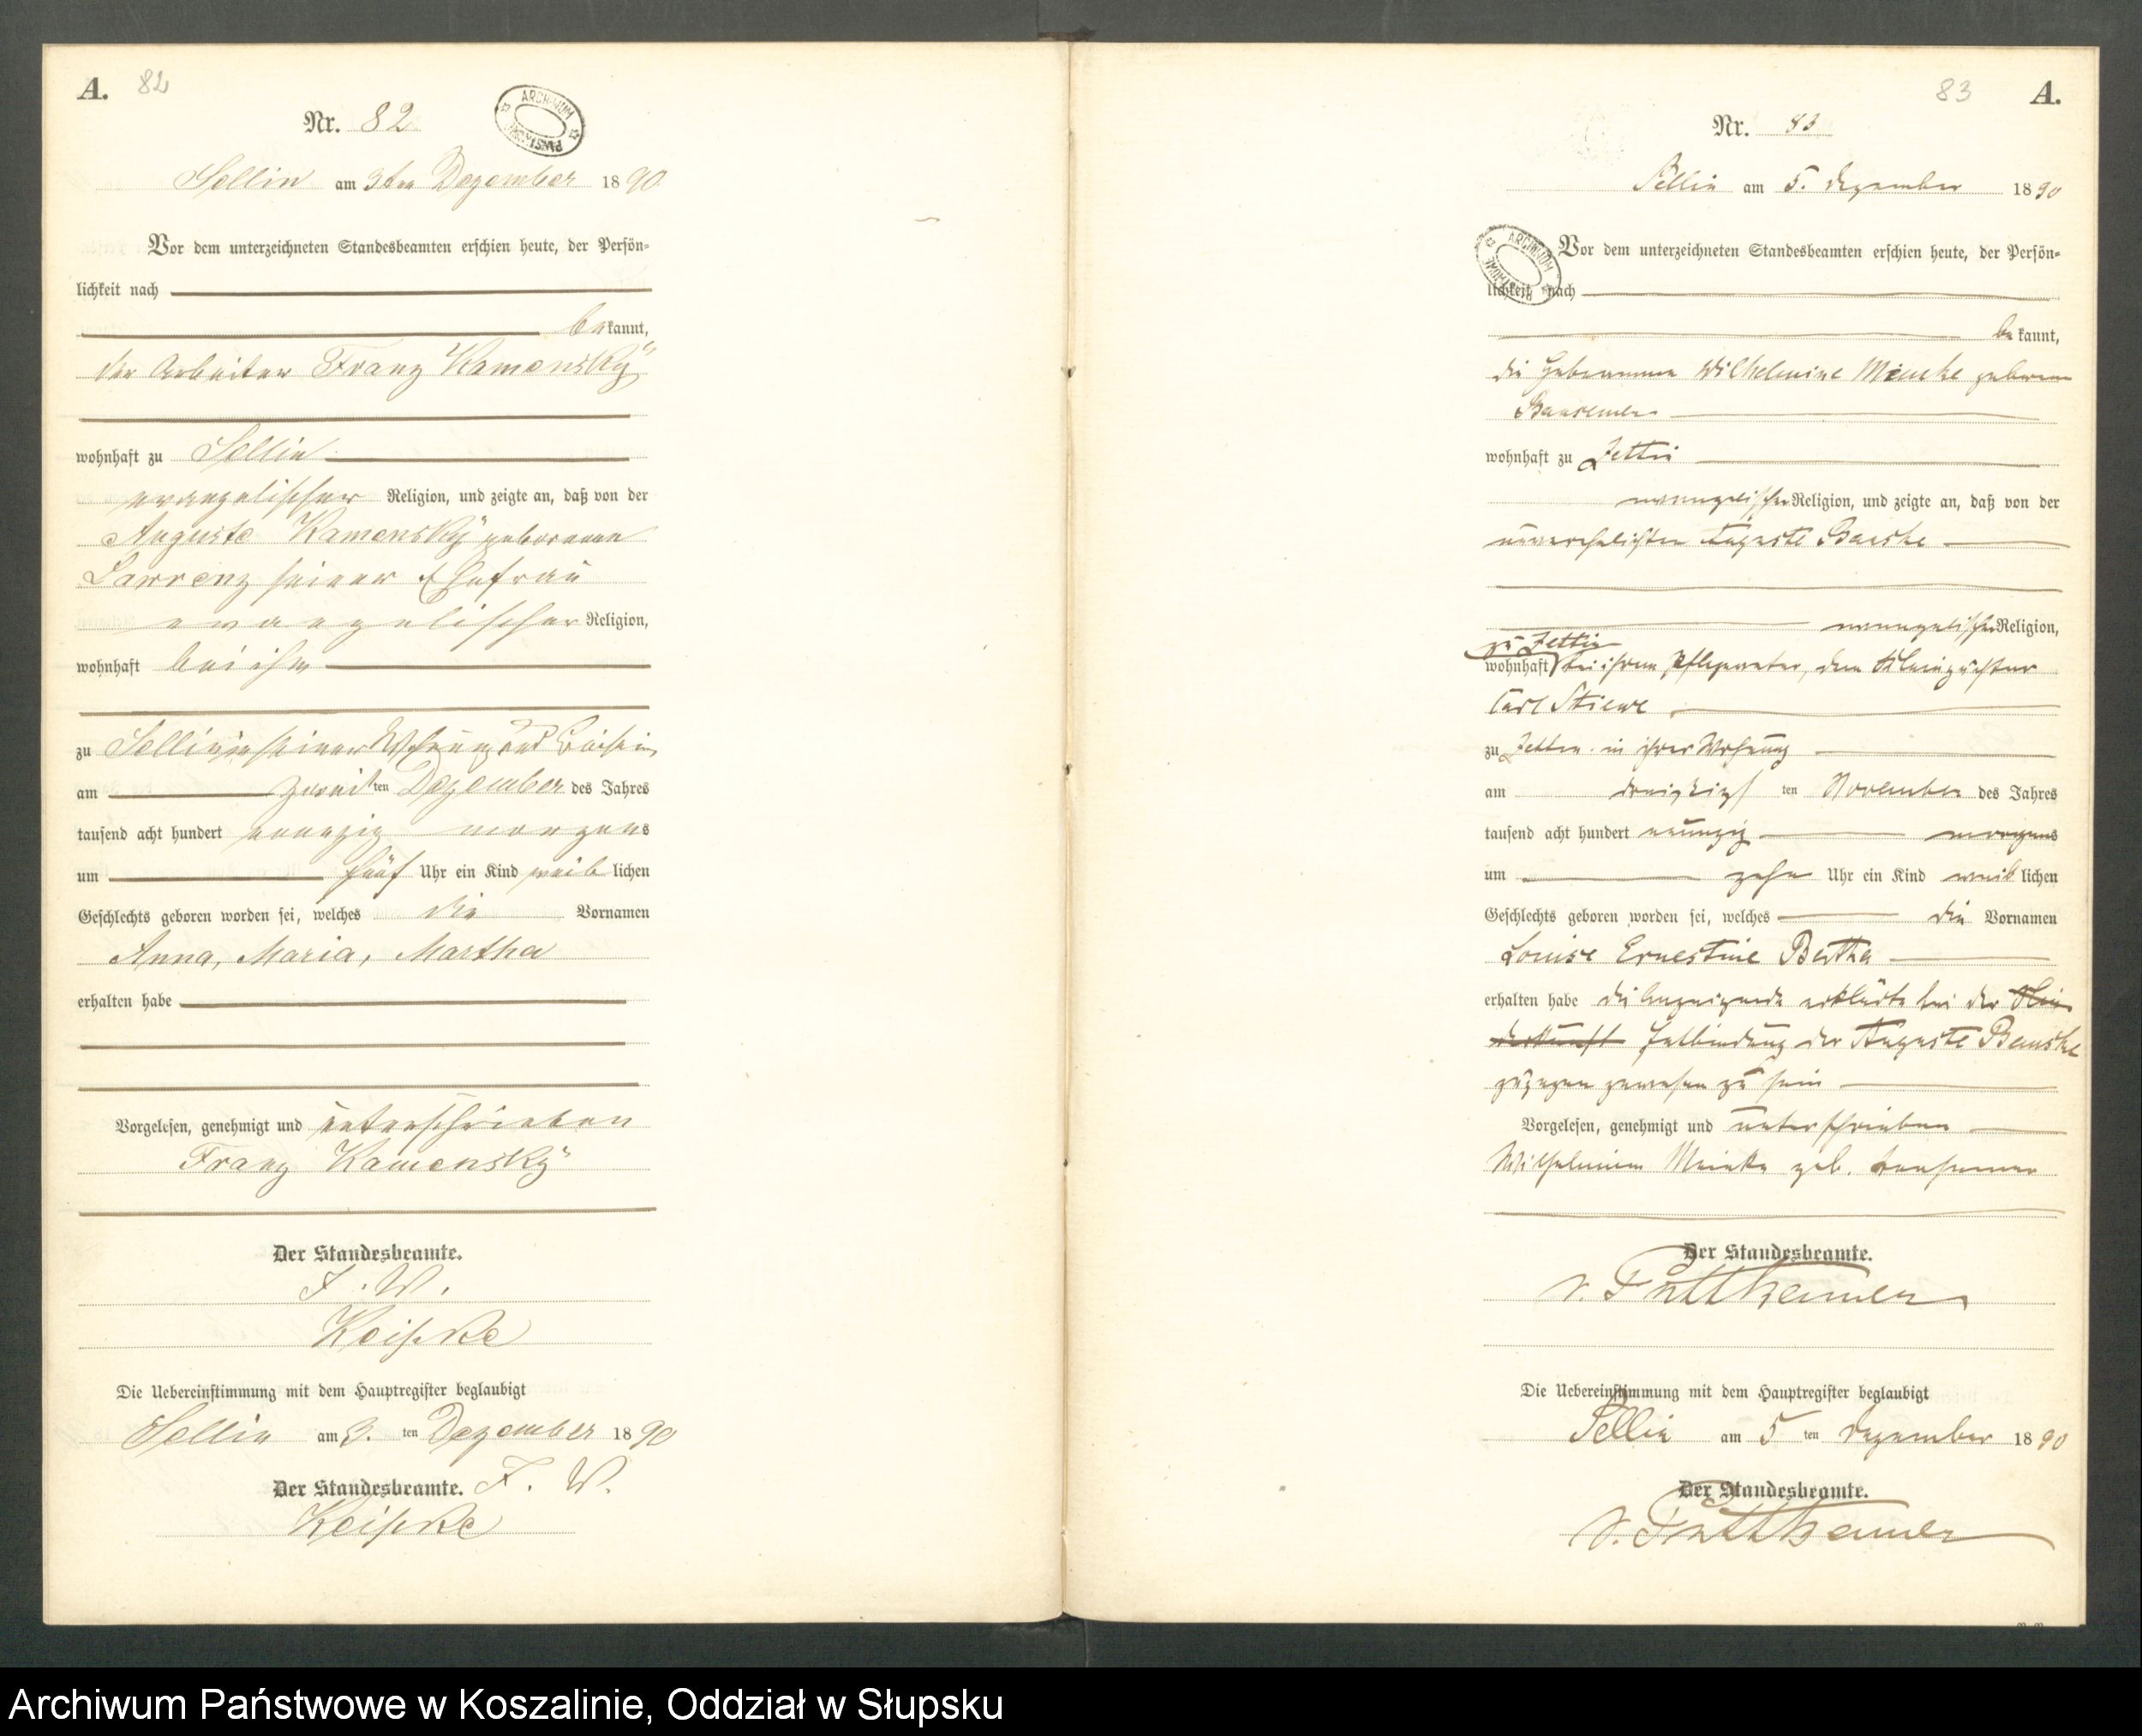 A. 82
Nr. 82
ARCHIWUM PAŃSTWOWE
Sellin am 3ten Dezember 1890
Vor dem unterzeichneten Standesbeamten erschien heute, der Persön-
lichkeit nach
bekannt,
der Arbeiter Franz Kamensky
wohnhaft zu Sellin
evangelischer Religion, und zeigte an, daß von der
Auguste Kamensky geborenen
Lawrenz seiner Ehefrau
evangelischer Religion,
wohnhaft bei ihm
zu Sellin in seiner Wohnung und Beisein
am zweiten Dezember des Jahres
tausend acht hundert neunzig morgens
um fünf Uhr ein Kind weiblichen
Geschlechts geboren worden sei, welches die Vornamen
Anna, Maria, Martha
erhalten habe
Vorgelesen, genehmigt und unterschrieben
Franz Kamensky
Der Standesbeamte.
I. V.
Die Uebereinstimmung mit dem Hauptregister beglaubigt
Sellin am 3. ten Dezember 1890
Der Standesbeamte. I. V.
83 A.
Nr. 83
Sellin am 5. Dezember 1890
ARCHIWUM
Vor dem unterzeichneten Standesbeamten erschien heute, der Persön-
lichkeit nach
bekannt,
die Hebeamme Wilhelmine Meinke geborene
wohnhaft zu Zettin
evangelischer Religion, und zeigte an, daß von der
unverehelichten Auguste Banske
evangelischer Religion,
zu Zettin
wohnhaft bei ihrem Pflegevater, dem Kleinpächter
Carl Stiewe
zu Zettin in ihrer Wohnung
am dreißigsten November des Jahres
tausend acht hundert neunzig morgens
um zehn Uhr ein Kind weiblichen
Geschlechts geboren worden sei, welches die Vornamen
Louise Ernestine Bertha
erhalten habe die Anzeigende erklärte bei der Nie
derkunft Entbindung der Auguste Banske
zugegen gewesen zu sein
Vorgelesen, genehmigt und unterschrieben
Wilhelmine Meinke geb.
Der Standesbeamte.
v. Puttkamer
Die Uebereinstimmung mit dem Hauptregister beglaubigt
Sellin am 5 ten Dezember 1890
Der Standesbeamte.
v. Puttkamer
Archiwum Państwowe w Koszalinie, Oddział w Słupsku